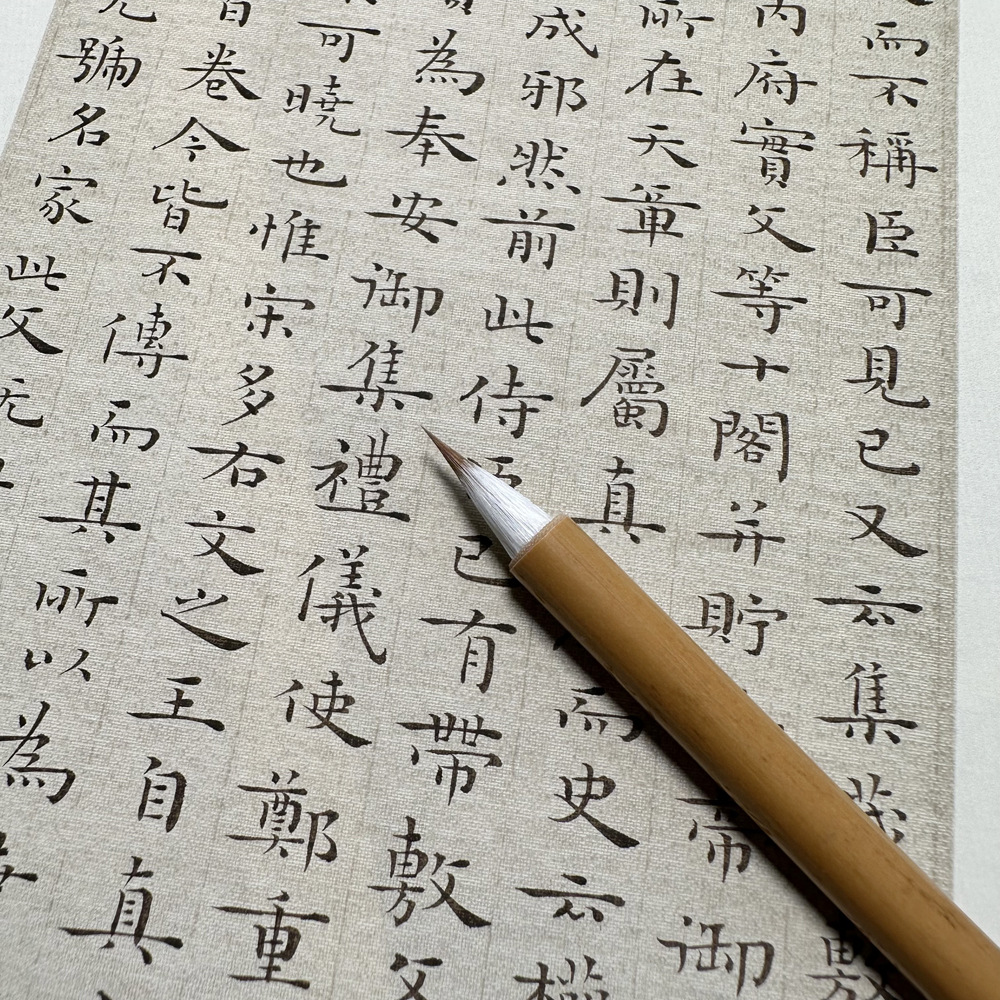 而不稱臣可見已又云集
内府實父等十閣并貯帝御
所在天章則屬真而史云
成邪然前此侍臣已有帶敷父
為奉安御集禮儀使鄭重
可曉也惟宋多右文之王自真
昔卷今皆不傳而其所以為
號名家此父无